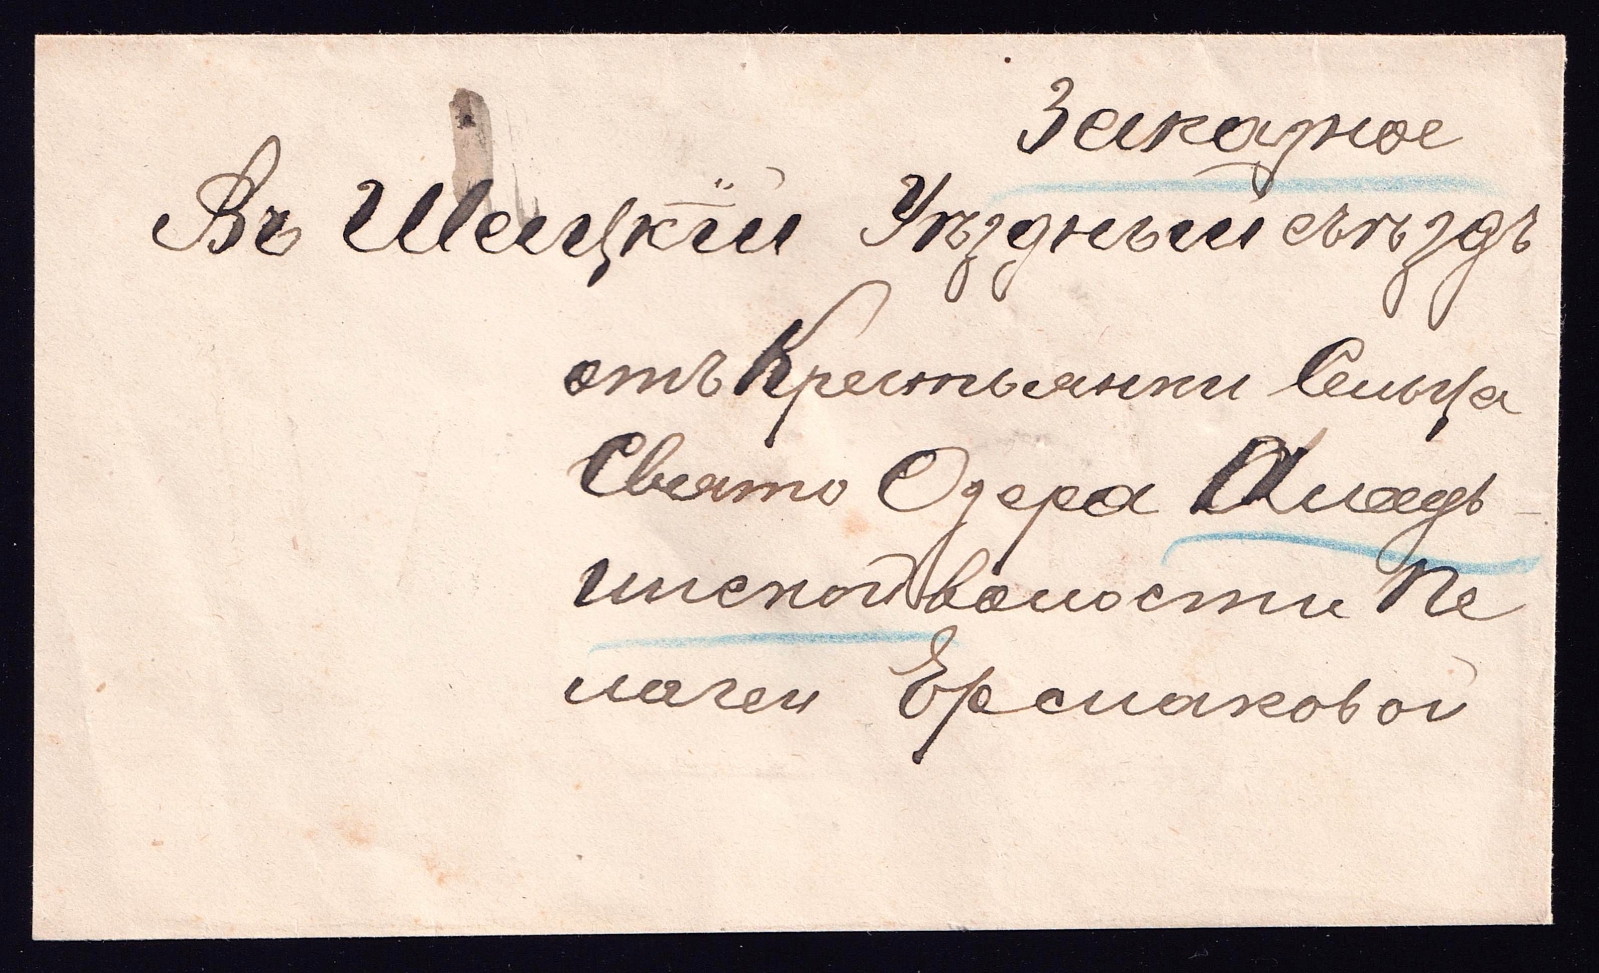 Заказное
Въ Шацкій Уѣздный съѣздъ
отъ Крестьянки Сельца
Свято Озера
инской волости Пе
лагеи Ермаковой